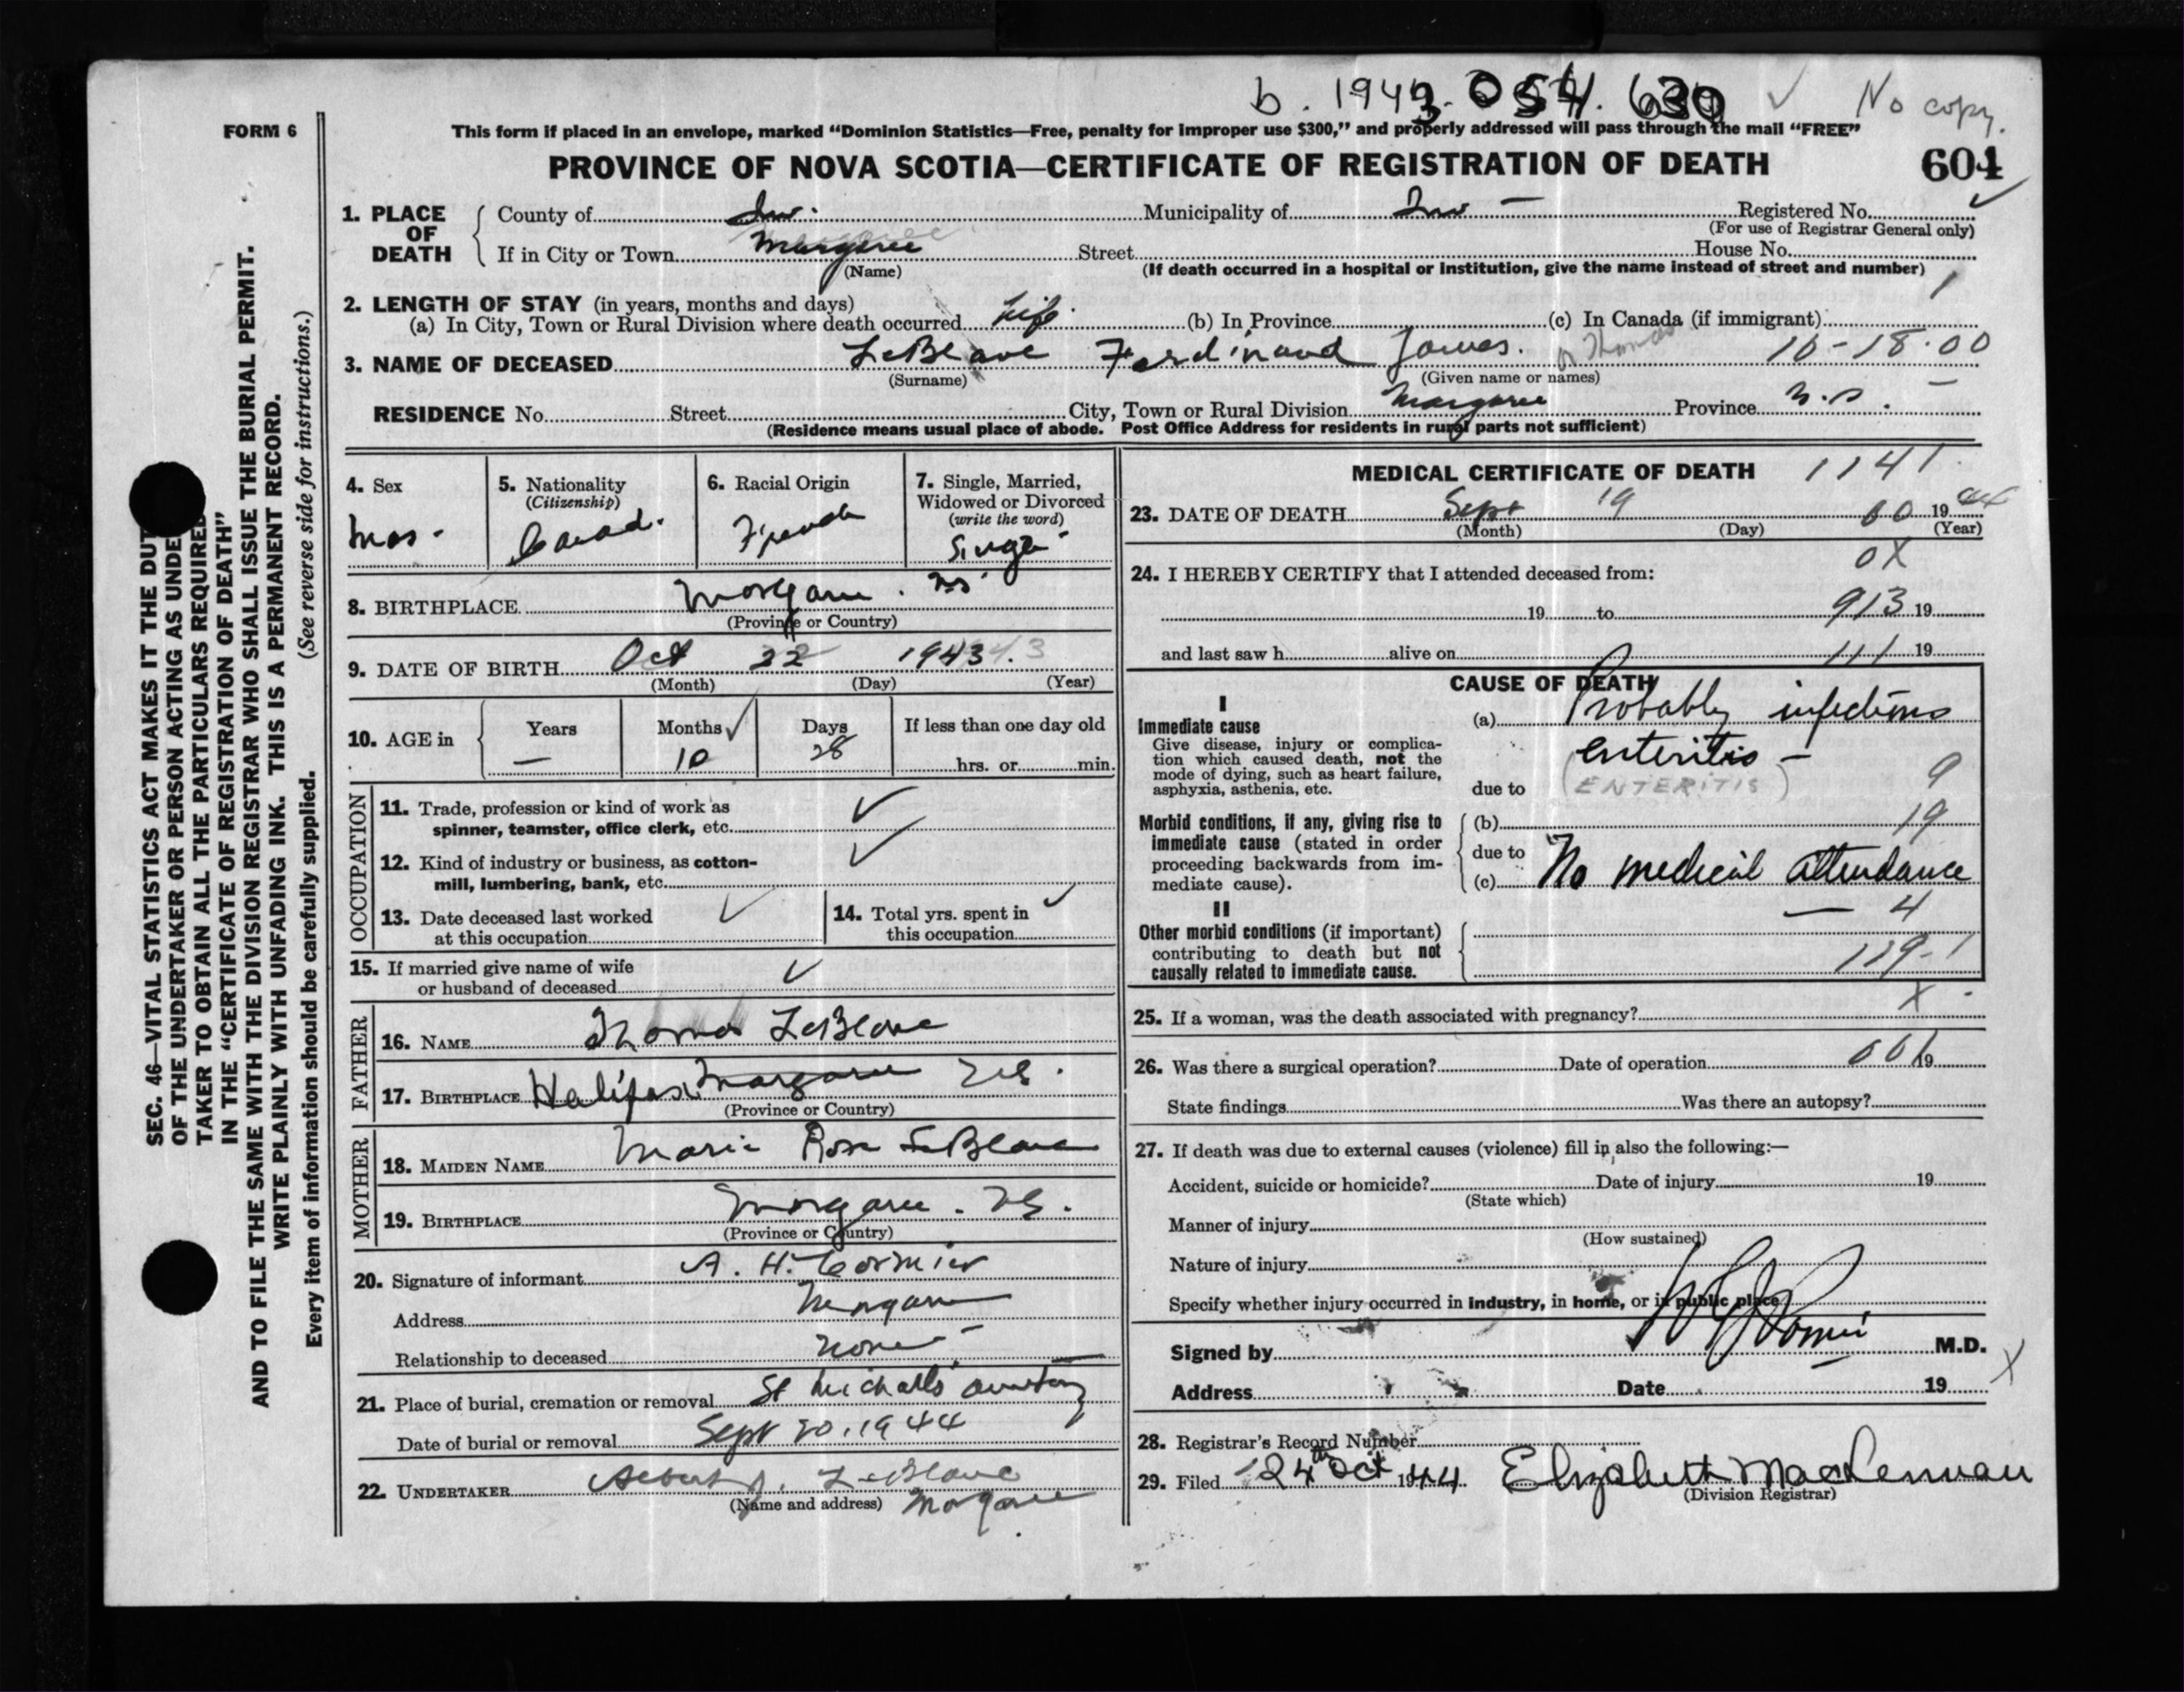 b. 1943. 054. 630 ✓ No copy.
FORM 6
This form if placed in an envelope, marked “Dominion Statistics—Free, penalty for improper use $300,” and properly addressed will pass through the mail “FREE”
PROVINCE OF NOVA SCOTIA—CERTIFICATE OF REGISTRATION OF DEATH 604
1. PLACE OF DEATH
County of Inv. Municipality of Inv — Registered No. ✓
(For use of Registrar General only)
If in City or Town Margaree Street House No.
(Name) (If death occurred in a hospital or institution, give the name instead of street and number)
1
2. LENGTH OF STAY (in years, months and days)
(a) In City, Town or Rural Division where death occurred Life. (b) In Province (c) In Canada (if immigrant)
3. NAME OF DECEASED LeBlanc Ferdinand James. or Thomas 10-18.00
(Surname) (Given name or names)
RESIDENCE No. Street City, Town or Rural Division Margaree Province N.S. —
(Residence means usual place of abode. Post Office Address for residents in rural parts not sufficient)
4. Sex
Mas.
5. Nationality
(Citizenship)
Canad.
6. Racial Origin
French
7. Single, Married,
Widowed or Divorced
(write the word)
Single
8. BIRTHPLACE Margaree. NS
(Province or Country)
9. DATE OF BIRTH Oct 22 1943. 43
(Month) (Day) (Year)
10. AGE in
Years — Months ✓ 10 Days 28 If less than one day old
hrs. or min.
OCCUPATION
11. Trade, profession or kind of work as
spinner, teamster, office clerk, etc. ✓
12. Kind of industry or business, as cotton-
mill, lumbering, bank, etc. ✓
13. Date deceased last worked
at this occupation ✓
14. Total yrs. spent in
this occupation ✓
15. If married give name of wife
or husband of deceased ✓
FATHER
16. NAME Thomas LeBlanc
17. BIRTHPLACE Halifax Margaree NS.
(Province or Country)
MOTHER
18. MAIDEN NAME Marie Rose LeBlanc
19. BIRTHPLACE Margaree. NS.
(Province or Country)
20. Signature of informant A. H. Cormier
Address Margaree
Relationship to deceased None —
21. Place of burial, cremation or removal St Michaels cemetery
Date of burial or removal Sept 20, 1944
22. UNDERTAKER Albert J. LeBlanc
(Name and address) Margaree
MEDICAL CERTIFICATE OF DEATH 1141
23. DATE OF DEATH Sept 19 60 1944
(Month) (Day) (Year)
0X
24. I HEREBY CERTIFY that I attended deceased from:
19 to 913 19
and last saw h alive on 111 19
CAUSE OF DEATH
I
Immediate cause
Give disease, injury or complica-
tion which caused death, not the
mode of dying, such as heart failure,
asphyxia, asthenia, etc.
(a) Probably infectious
enteritis —
due to (ENTERITIS) 9
Morbid conditions, if any, giving rise to
immediate cause (stated in order
proceeding backwards from im-
mediate cause).
(b) 19
due to
(c) No medical attendance
— 4
II
Other morbid conditions (if important)
contributing to death but not
causally related to immediate cause.
119-1
25. If a woman, was the death associated with pregnancy? X
26. Was there a surgical operation? Date of operation 001 19
State findings Was there an autopsy?
27. If death was due to external causes (violence) fill in also the following:—
Accident, suicide or homicide? Date of injury 19
(State which)
Manner of injury
(How sustained)
Nature of injury
Specify whether injury occurred in industry, in home, or in public place
Signed by M.D.
X
Address Date 19
28. Registrar's Record Number
29. Filed 24th Oct 1944 Elizabeth MacLennan
(Division Registrar)
SEC. 46—VITAL STATISTICS ACT MAKES IT THE DUT
OF THE UNDERTAKER OR PERSON ACTING AS UNDE
TAKER TO OBTAIN ALL THE PARTICULARS REQUIRED
IN THE “CERTIFICATE OF REGISTRATION OF DEATH”
AND TO FILE THE SAME WITH THE DIVISION REGISTRAR WHO SHALL ISSUE THE BURIAL PERMIT.
WRITE PLAINLY WITH UNFADING INK. THIS IS A PERMANENT RECORD.
Every item of information should be carefully supplied. (See reverse side for instructions.)